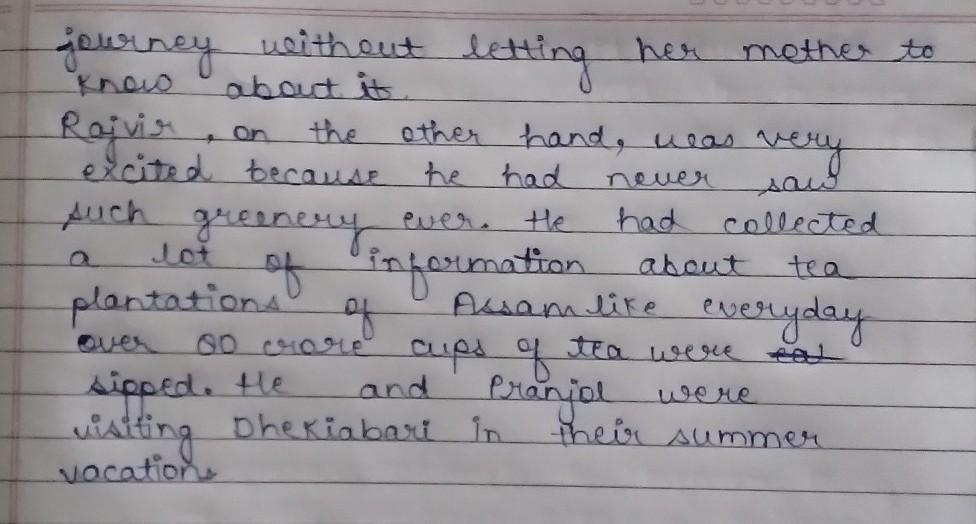 journey without letting her mother to
know about it.
Rajvir, on the other hand, was very
excited because he had never saw
such greenery ever. He had collected
a lot of information about tea
plantations of Assam like everyday
over 80 crore cups of tea were
sipped. He and Pranjol were
visiting Dhekiabari in their summer
vacation.